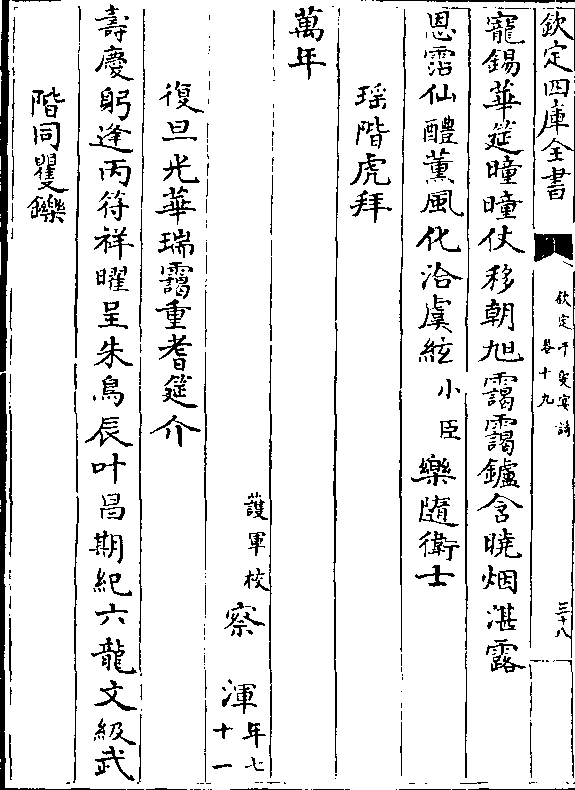 欽定四庫全書
欽定千叟宴詩
卷十九
三十八
寵錫華筵曈曈仗移朝旭靄靄鑪含曉烟湛露
恩霑仙醴薰風化洽虞絃小臣樂隨衛士
瑶階虎拜
萬年
護軍校察渾年七十一
復旦光華瑞靄重耆筵介
壽慶躬逢丙符祥曜呈朱鳥辰叶昌期紀六龍文級武
階同矍鑠